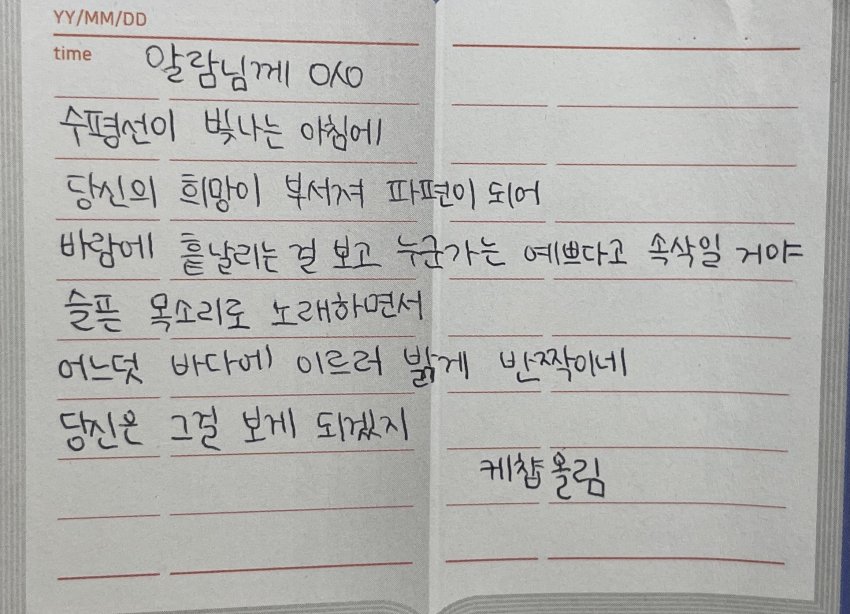 YY/MM/DD
time 알람님께 ㅇㅅㅇ
수평선이 빛나는 아침에
당신의 희망이 부서져 파편이 되어
바람에 흩날리는 걸 보고 누군가는 예쁘다고 속삭일 거야
슬픈 목소리로 노래하면서
어느덧 바다에 이르러 밝게 반짝이네
당신은 그걸 보게 되겠지
케챱 올림